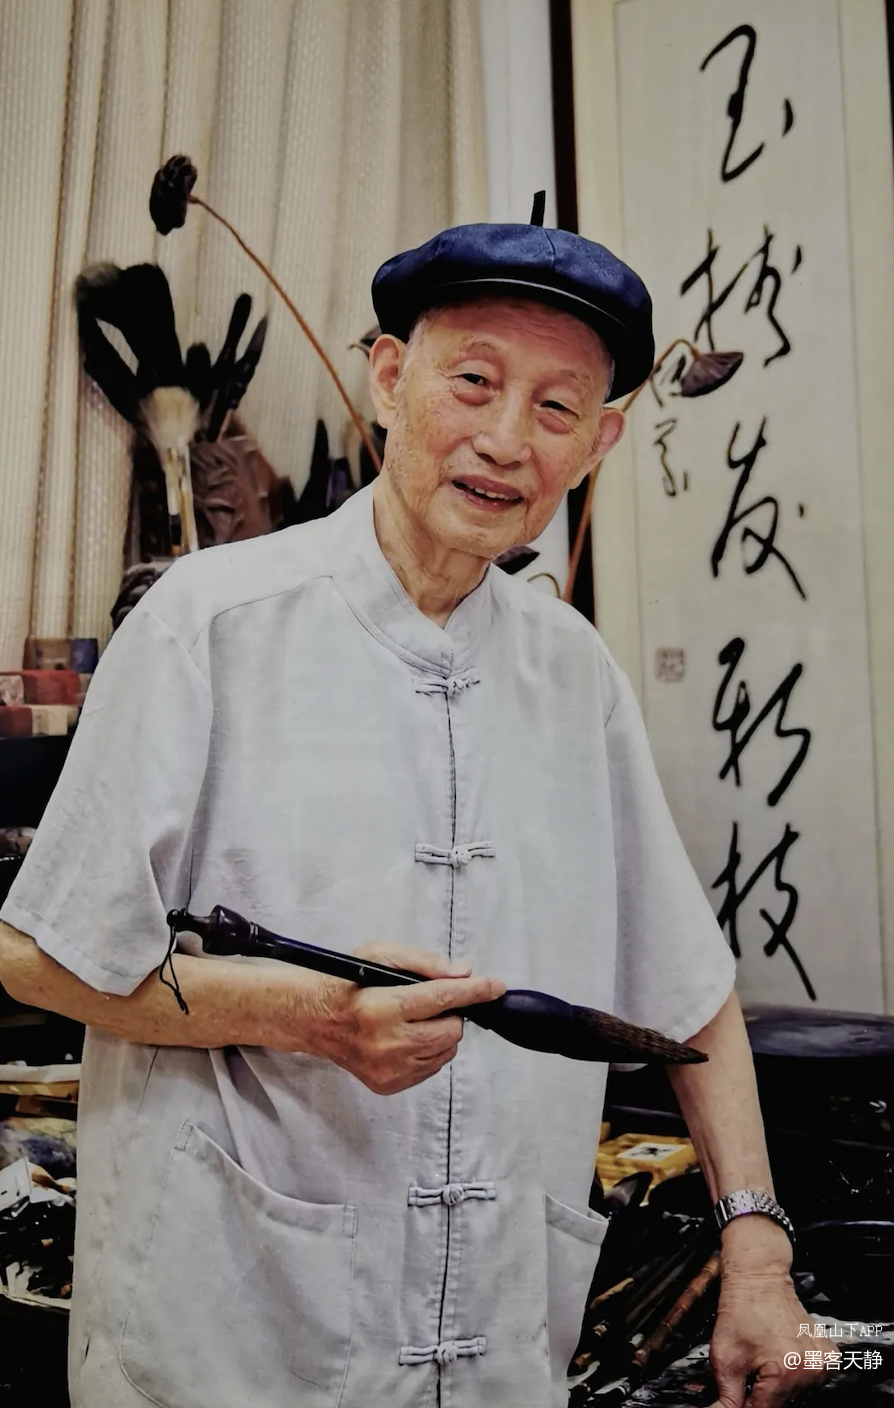 玉树发新枝
凤凰山下APP
@墨客天静